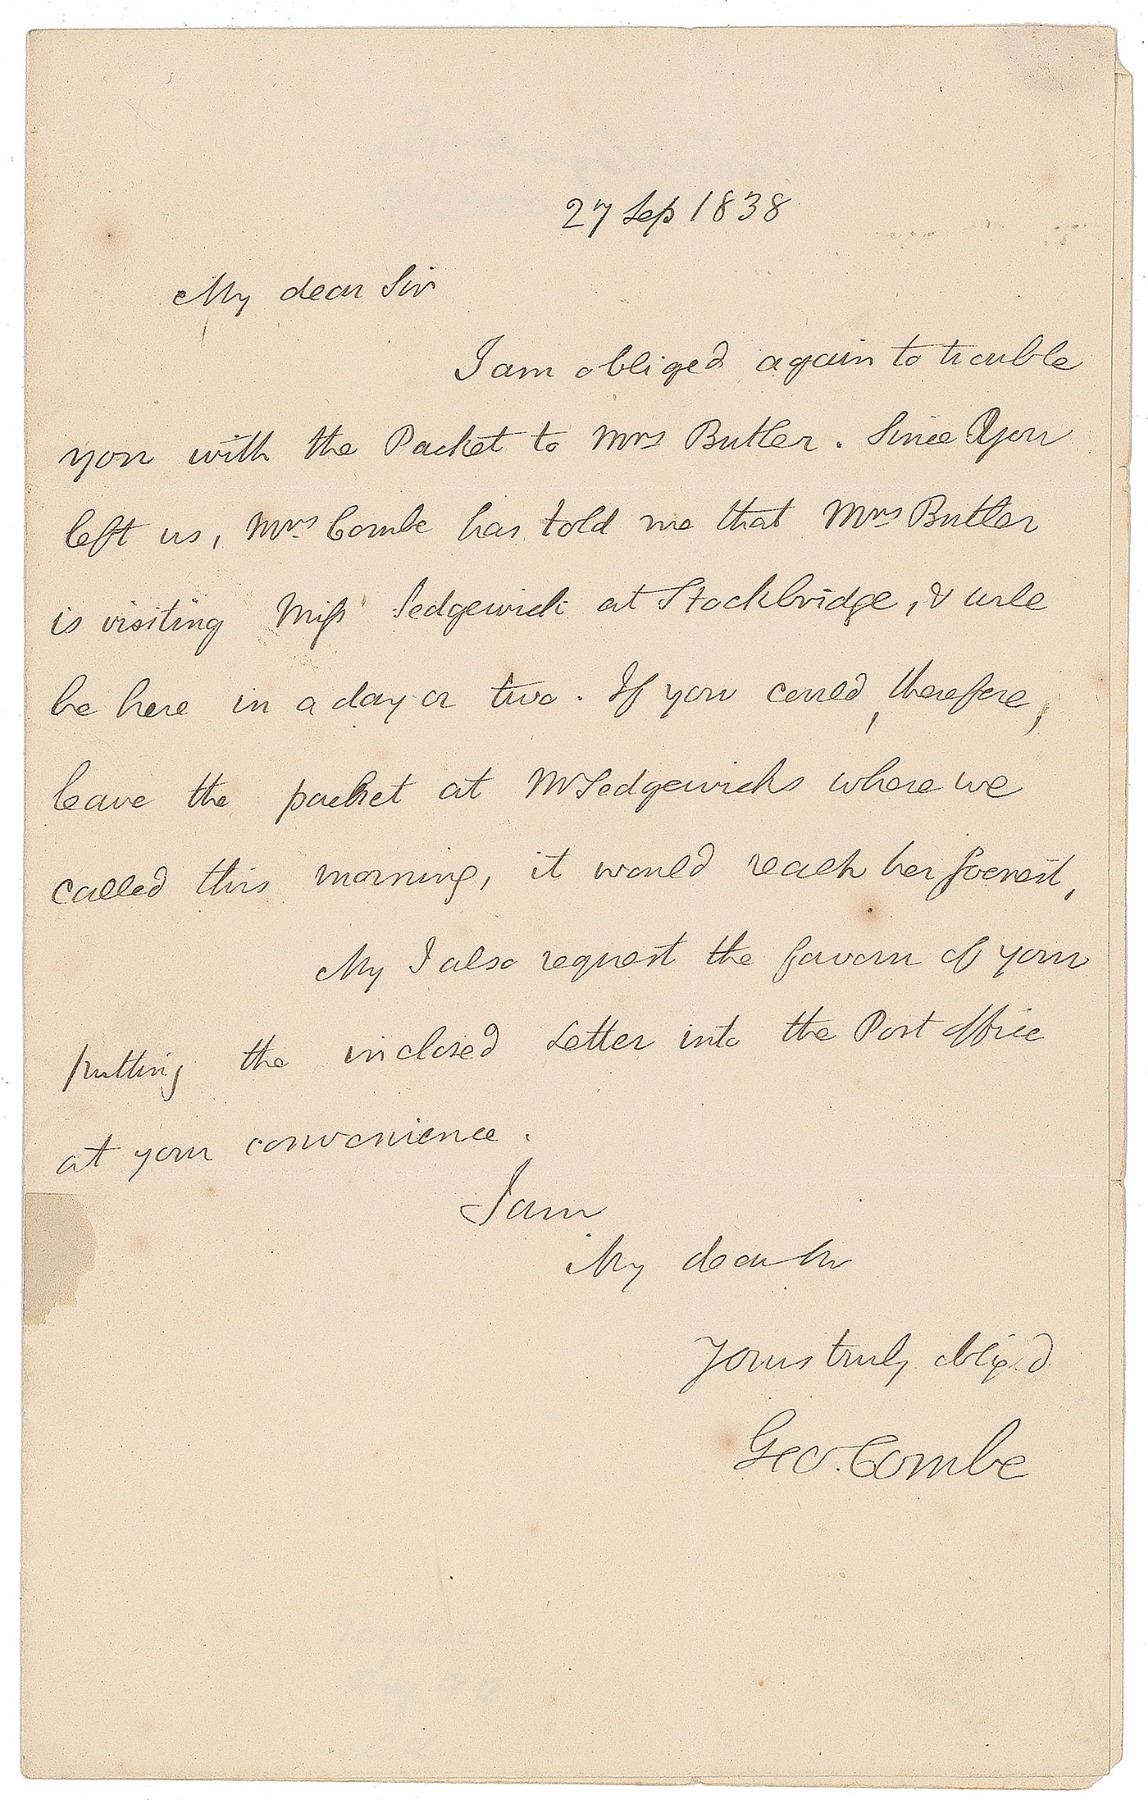 27 Sep 1838
My dear Sir
I am obliged again to trouble
you with the Packet to Mrs Butler. Since you
left us, Mrs. Combe has told me that Mrs Butler
is visiting Miss Sedgewick at Stockbridge, & will
be here in a day or two. If you could, therefore,
leave the packet at Mr Sedgewicks where we
called this morning, it would reach her soonest,
My I also request the favour of your
putting the inclosed Letter into the Post office
at your convenience.
I am
My dear Sir
Yours truly obliged
Geo. Combe